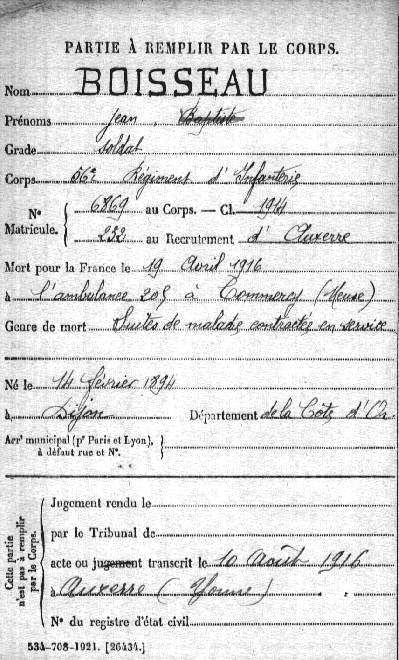 PARTIE À REMPLIR PAR LE CORPS.
Nom BOISSEAU
Prénoms Jean, Baptiste
Grade soldat
Corps 56e Régiment d'Infanterie
N° Matricule. { 6869 au Corps. — Cl. 1914
232 au Recrutement d'Auxerre
Mort pour la France le 19 Avril 1916
à l'ambulance 205 à Commercy (Meuse)
Genre de mort Suites de maladie contractée en service
Né le 14 février 1894
à Dijon Département de la Côte d'Or
Arr^t municipal (p^r Paris et Lyon), à défaut rue et N°. }
Cette partie n'est pas à remplir par le Corps. {
Jugement rendu le
par le Tribunal de
acte ou jugement transcrit le 10 Août 1916
à Auxerre (Yonne)
N° du registre d'état civil
534-708-1921. [26434.]